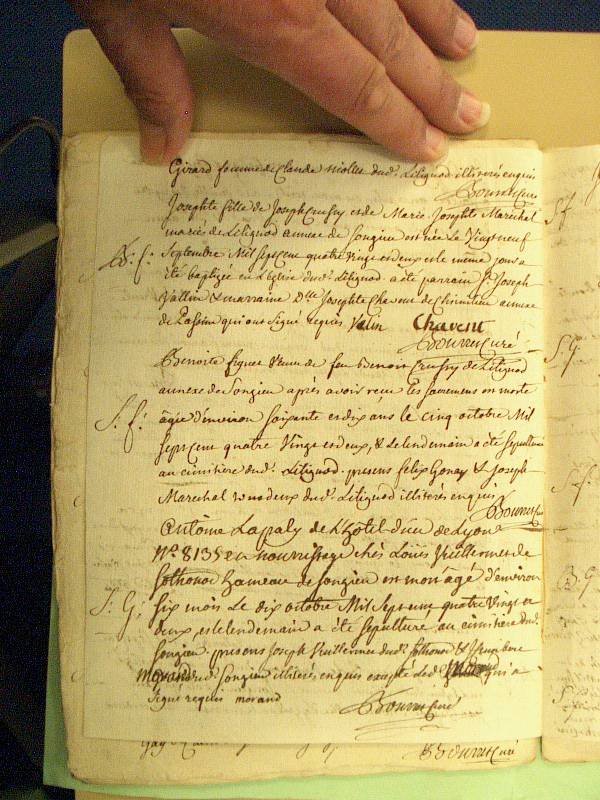 Girard femme de Claude Niollet dud. Litignod illiterés enquis
Bourret Curé
Josephte fille de Joseph Crussy et de Marie Josephte Marechal
mariés de Litignod annexe de Songieu est née Le Vingt neuf
B. f. Septembre Mil Sept cent quatre vingt et deux et le même jour a
été baptizée en L'église dud. Litignod. a été parrain Sr. Joseph
Vallin & marraine Dlle Josephte Chavent de
de Passin qui ont Signé requis Valin Chavent
Bourret Curé
Benoite Figuet Veuve de feu Benoit Crussy de Litignod
annexe de Songieu après avoir recu les sacremens est morte
S. f. âgée d'environ soixante et dix ans le cinq octobre Mil
Sept cent quatre Vingt et deux, & Le lendemain a été sepulturé
au cimitière dud. Litignod. presens felix Gonay & Joseph
Marechal dud. Litignod illiterés enquis
Bourret Curé
Antoine Lapaly de L'Hôtel Dieu de Lyon
No. 8135 en nourrissage chès Louis Vuillermet de
Sothonod hameau de Songieu est mort âgé d'environ
S. G. six mois Le dix octobre Mil Sept cent quatre Vingt et
deux, et le lendemain a été sepulturé au cimitière dud.
Songieu. presens Joseph Vuillermet dud. Sothonod &
morand dud. Songieu illiterés enquis excepté led. qui a
Signé requis morand
Bourret Curé
Bourret Curé
S f
S. G
S. f.
B. G
S